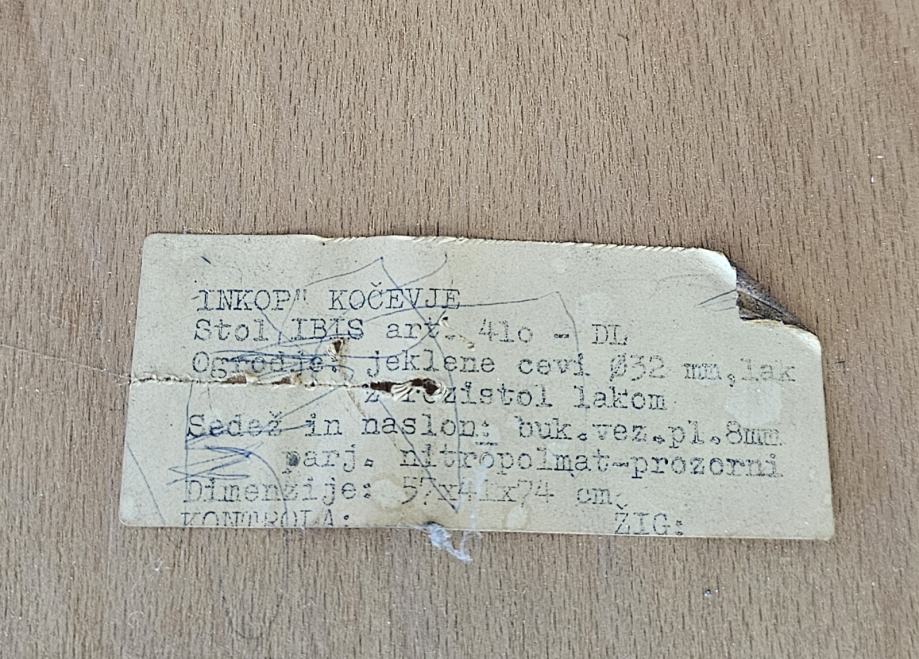 INKOP" KOČEVJE
Stol IBIS art. 41o - DL
Ogrodje: jeklene cevi Ø32 mm, lak
z rezistol lakom
Sedež in naslon: buk.vez.pl.8mm
parj. nitropolmat-prozorni
Dimenzije: 57x41x74 cm.
KONTROLA: ŽIG: